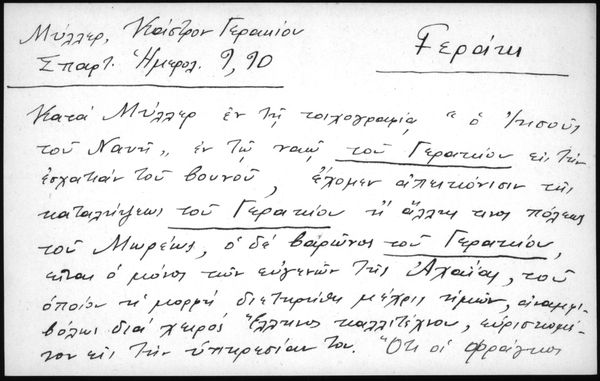 Μύλλερ, Κάστρον Γερακίου
Σπαρτ. Ἡμερολ. 9, 90
Γεράκι
Κατά Μύλλερ ἐν τῇ τοιχογραφίᾳ "ὁ Ἰησοῦς
τοῦ Ναυῆ„ ἐν τῷ ναῷ τοῦ Γερακίου εἰς τήν
ἐσχατιάν τοῦ βουνοῦ, ἔχομεν ἀπεικόνισιν τῆς
καταλήψεως τοῦ Γερακίου ἤ ἄλλης τινος πόλεως
τοῦ Μωρέως, ὁ δέ βαρῶνος τοῦ Γερακίου,
εἶναι ὁ μόνος τῶν εὐγενῶν τῆς Ἀχαΐας, τοῦ
ὁποίου ἡ μορφή διετηρήθη μέχρις ἡμῶν, ἀναμφι-
βόλως διά χειρός Ἕλληνος καλλιτέχνου, εὑρισκομέ-
νου εἰς τήν ὑπηρεσίαν του. "Ὅτι οἱ Φράγκοι